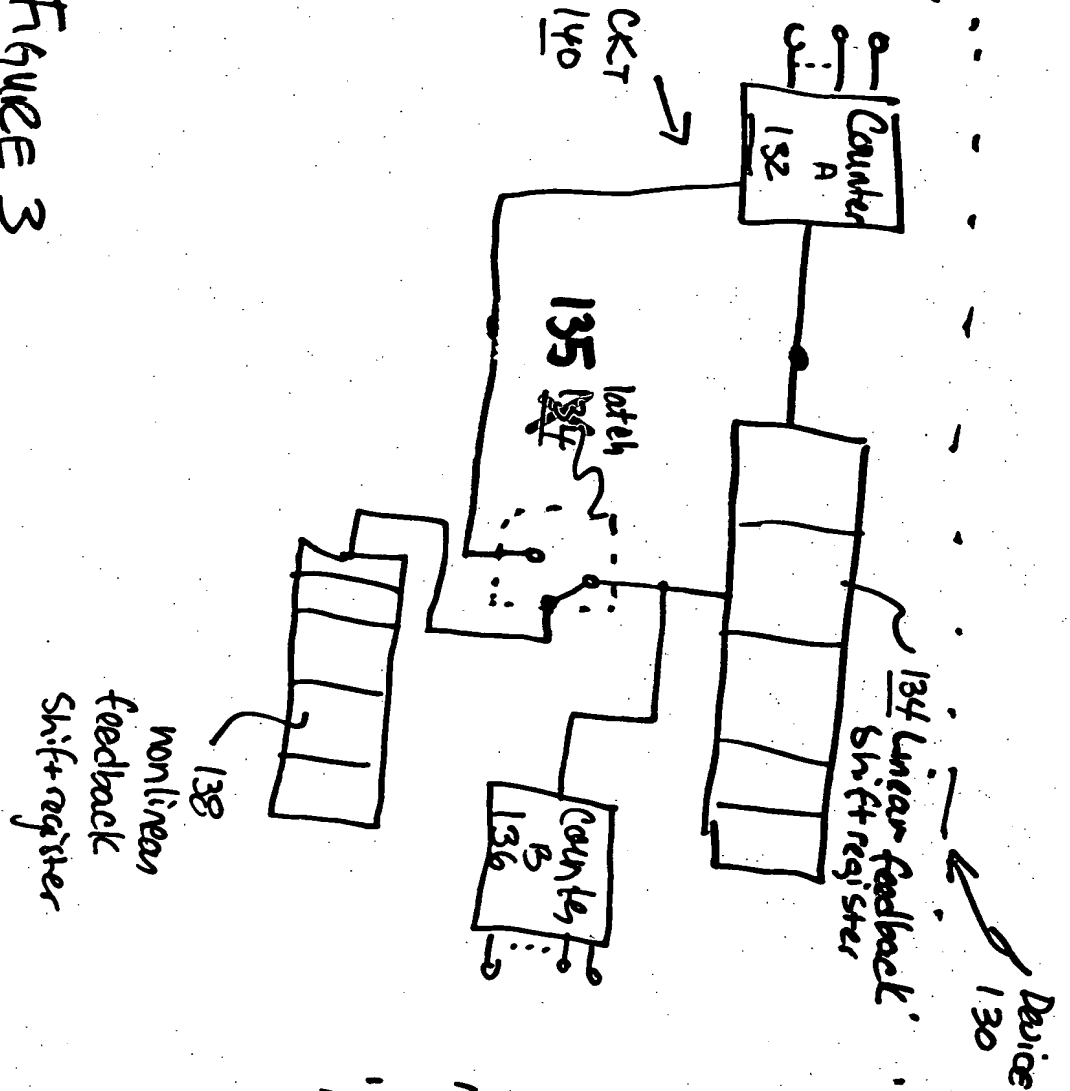 Device
130
134 Linear feedback
Shift register
Counter
A
132
CKT
140
latch
135
Counter
B
136
138
nonlinear
feedback
Shift register
FIGURE 3